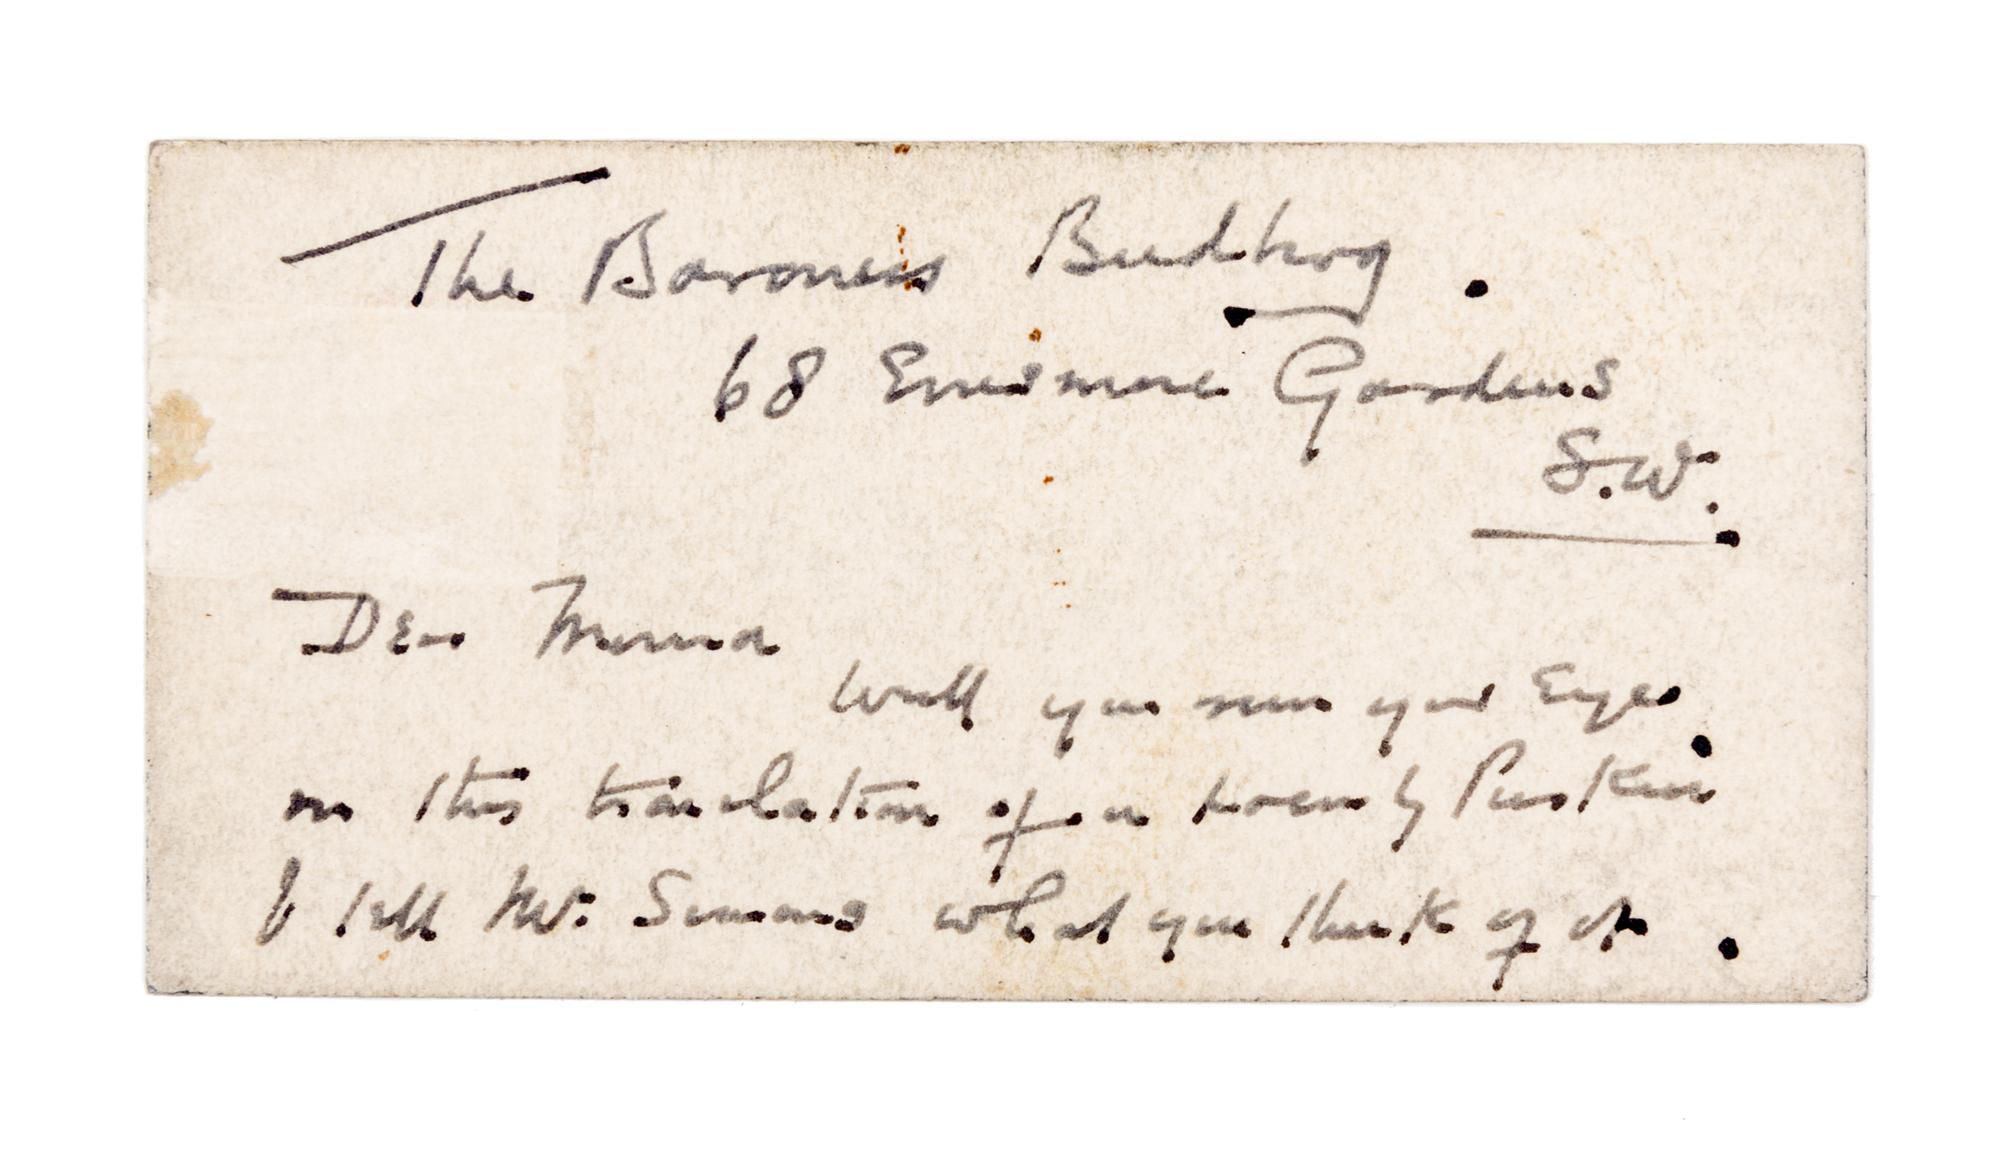 The Baroness Budberg.
68 Ennismore Gardens
S.W.
Dear Moura
Will you run your Eye
on this translation of a poem by Puskin
& tell Mr. Simmons what you think of it.